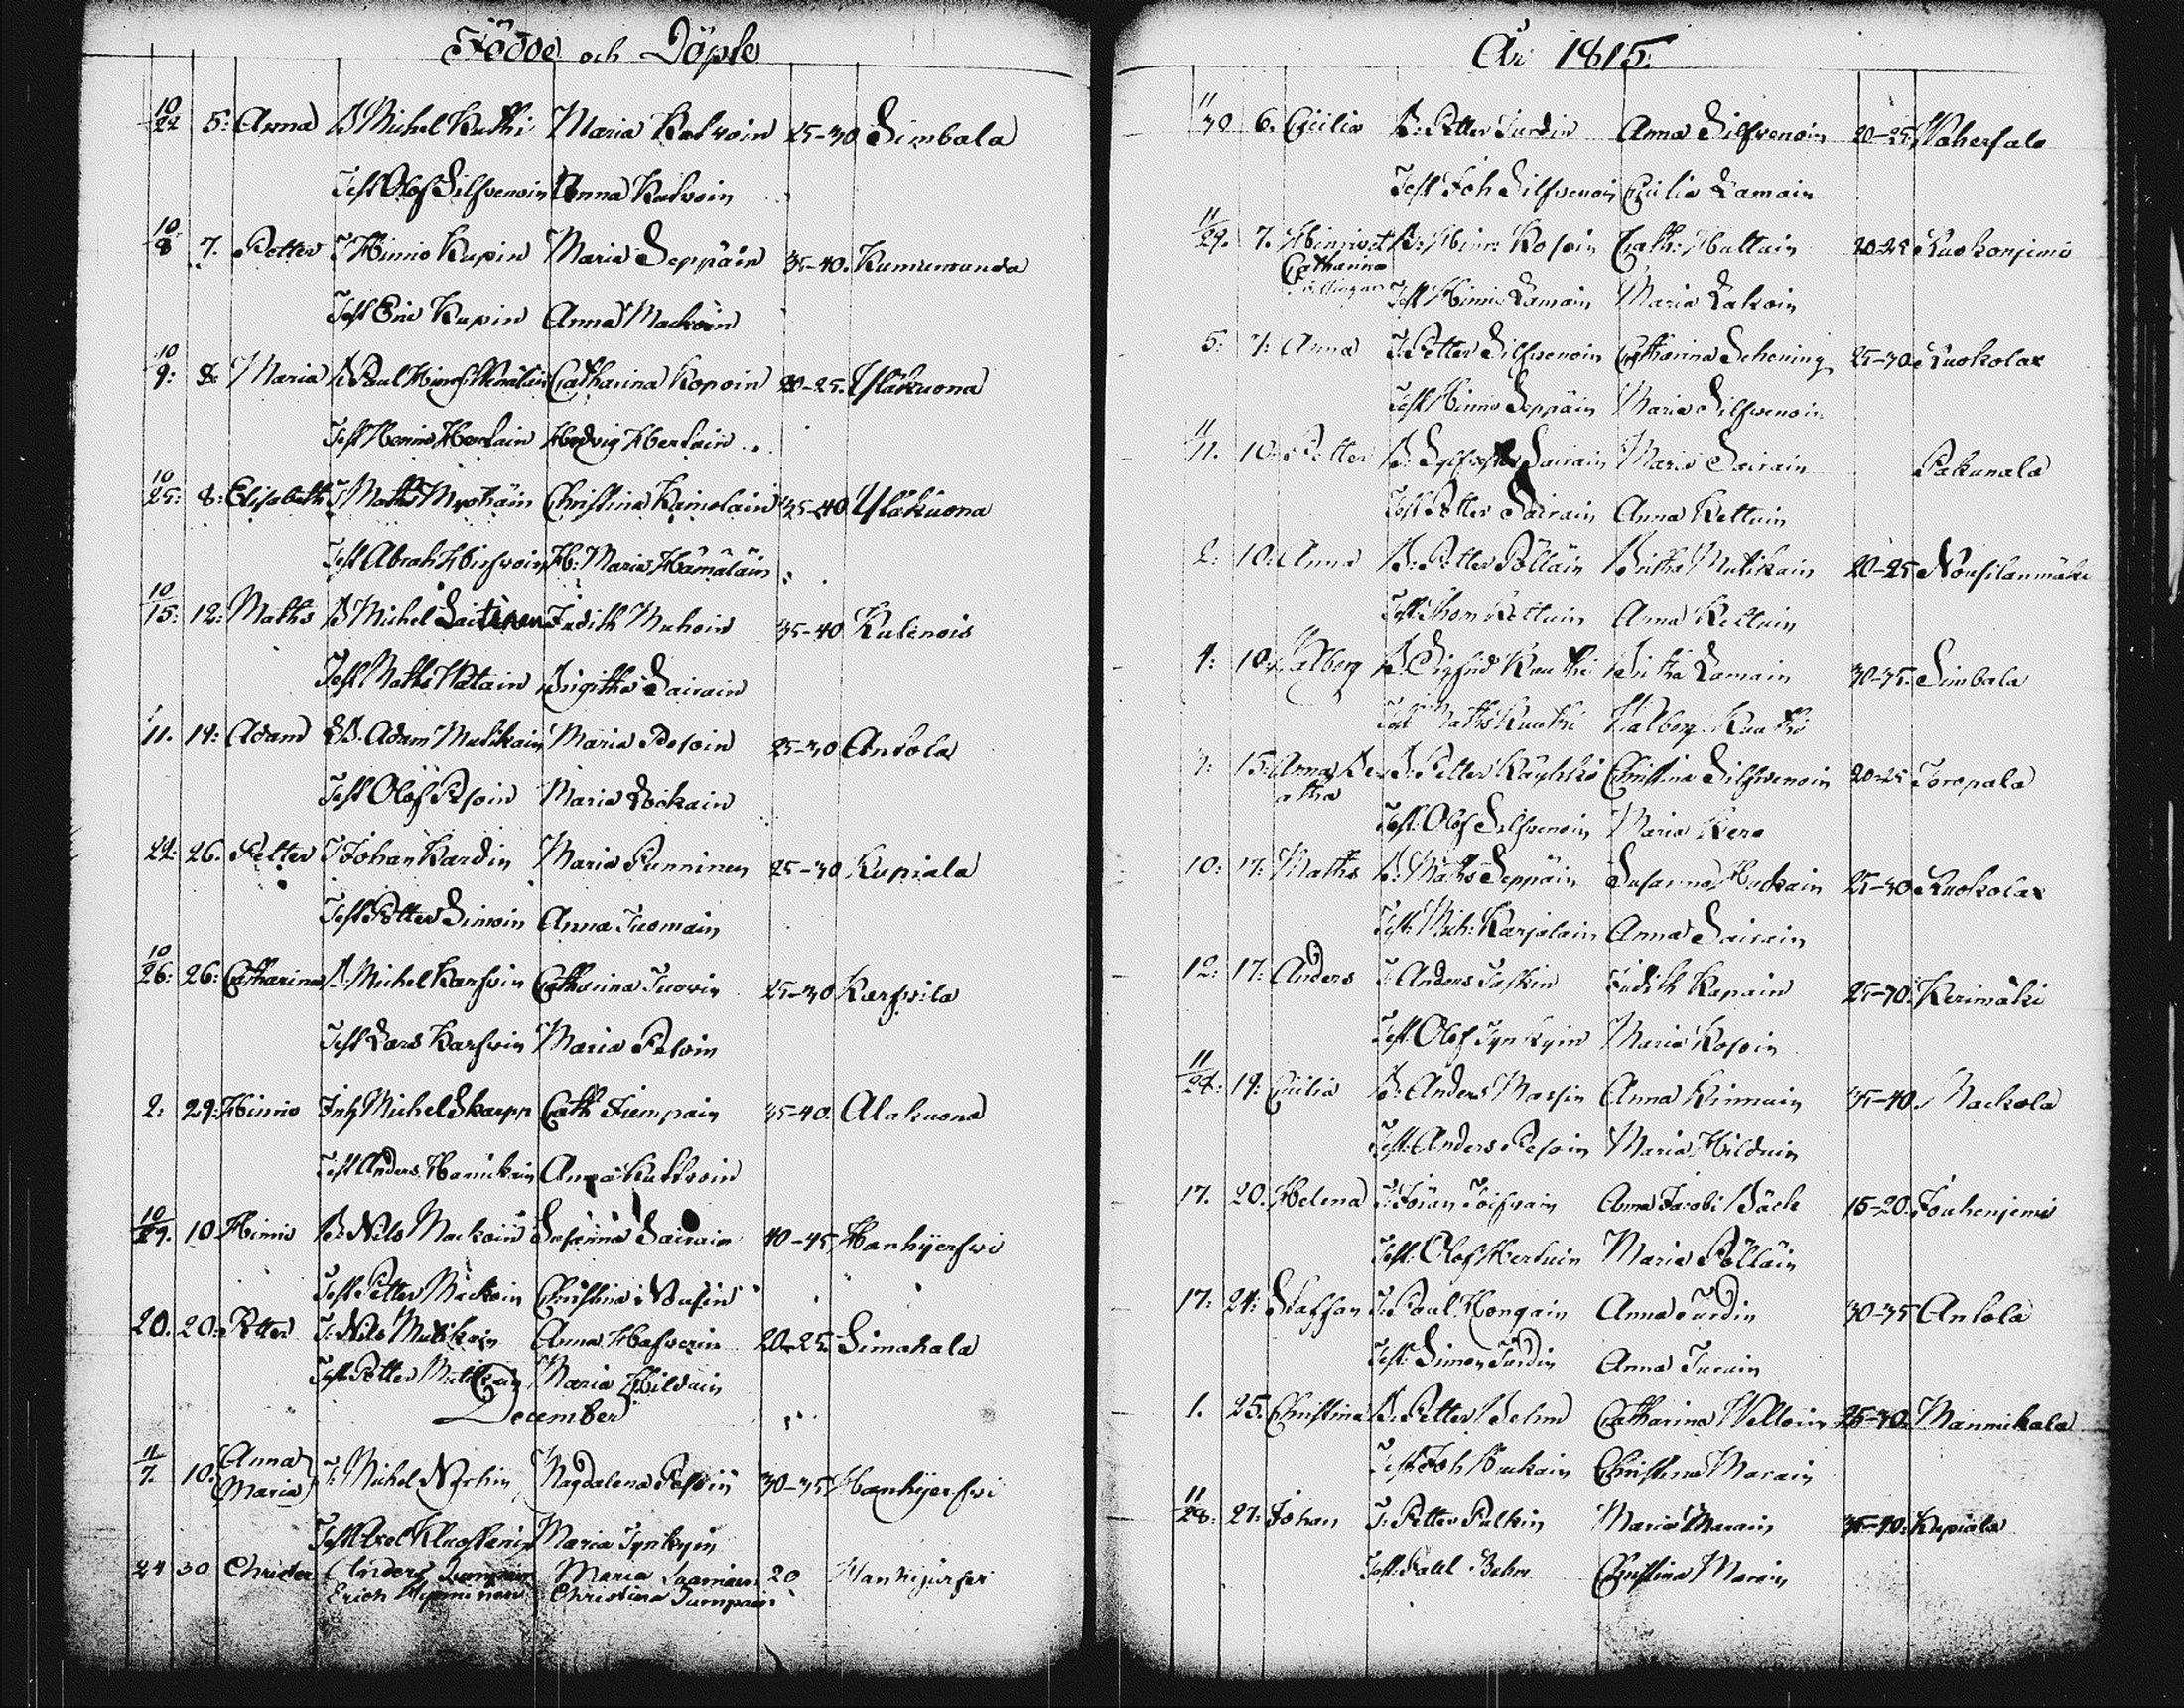 Födde och Döpte
10/22 5: Anna B Michel Kutti Maria Kukoin 25-30 Simbala
Test Olof Silfvenoin Anna Kukoin
10/8 7. Petter I Hinric Kupin Maria Seppäin 35-40. Kumumanda
Test Eric Kupin Anna Mackoin
10/9: 8. Maria B Paul Catharina Kopoin 20-25. Yläkuona
Test Henric Herlain Hedvig Herlain
10/25: 8: Elisabeth I Matts Myöhäin Christina Kamolain 35-40 Yläkuona
Test Abrah Hirfvoin H: Maria Hämäläin
10/15: 12: Matts B Michel Laitinen Judith Muhoin 35-40 Kulenois
Test Matts Brigitha Sairain
11. 14: Adam B. Adam Mutikain Maria Pesoin 25-30 Anlola
Test Olof Pesoin Maria Loikain
22: 26. Petter I Johan Kardin Maria Punninen 25-30 Kupiala
Test Petter Simoin Anna Tuomain
10/26: 26: Catharina B. Michel Karfvin Catharina Tuovin 25-30 Karfvila
Test Lars Karfvin Maria Pesoin
2: 29: Hinric Inh Michel Skarpp Cath Jumpain 35-40. Alakuona
Test Anders Anna Kukkoin
10/29. 10 Hinric B: Nils Mackoin Susanna Sairain 40-45 Hanhijerfvi
Test Petter Mackoin Christina Nousin
20. 20: Petter I: Nils Mutikain Anna Hafverin 20-25. Simahala
Test Petter Mutikain Maria Hilduin
December
11/7. 10. Anna Maria I: Michel Magdalena Pesoin 30-35 Hanhijerfvi
Test Axel Maria Tynkyin
24 30 Christer Anders Jumpain Maria Laamain 20 Hanhijärfvi
Erich Hyminen Christina Jumpain
År 1815.
11/30 6. Cecilia B: Petter Turdin Anna Silfvenoin 20-25. Waherfala
Test Joh Silfvenoin Cecilia Lamain
11/29. 7. Hinric et Catharina Tvillingar B: Hinr: Kosoin Cath: Hultuin 20-25 Ruokoniemi
Test Hinric Lamain Maria Lakoin
5: 7: Anna I: Petter Silfvenoin Catharina Schening 25-30. Ruokolax
Test Hinric Seppäin Maria Silfvenoin
11/11. 10: Petter B: Sylfvester Sairain Maria Sairain Pakunala
Test Petter Sairain Anna Kettuin
2: 10: Anna B: Petter Pölläin Britha Mutikain 20-25 Nousilanmäki
Test: Thom Kettuin Anna Kettuin
4: 10: Walborg B. Sigfrid Kautki Britha Lamain 30-35. Simbala
Test Matts Kautki Walborg Kautki
7: 15: Anna Beatha B: Petter Käyhkö Christina Silfvenoin 20-25 Toropala
Test: Olof Silfvenoin Maria Kero
10: 17: Matts B: Matts Seppäin Susanna Huckain 25-30. Ruokolax
Test: Mich: Karjalain Anna Sairain
12: 17: Anders I: Anders Taskin Judith Kapain 25-30. Kerimäki
Test: Olof Tynkyin Maria Kosoin
11/24: 19: Cecilia B: Anders Massin Anna Kinnuin 35-40. Mackola
Test: Anders Pesoin Maria Hilduin
17. 20. Helena I: Jöran Toifvain Anna Jacobi Bäck 15-20. Jouhenjemi
Test: Olof Herluin Maria Pölläin
17: 24: Staffan I: Paul Hongain Anna Turdin 30-35 Anlola
Test: Simon Turdin Anna Turuin
1. 25. Christina B: Petter Behm Catharina Welloin 25-30. Mannikala
Test Joh Huckain Christina Marain
11/28: 27: Johan I: Petter Pulkin Maria Marain 35-40: Kupiala
Test: Paul Behm Christina Marain